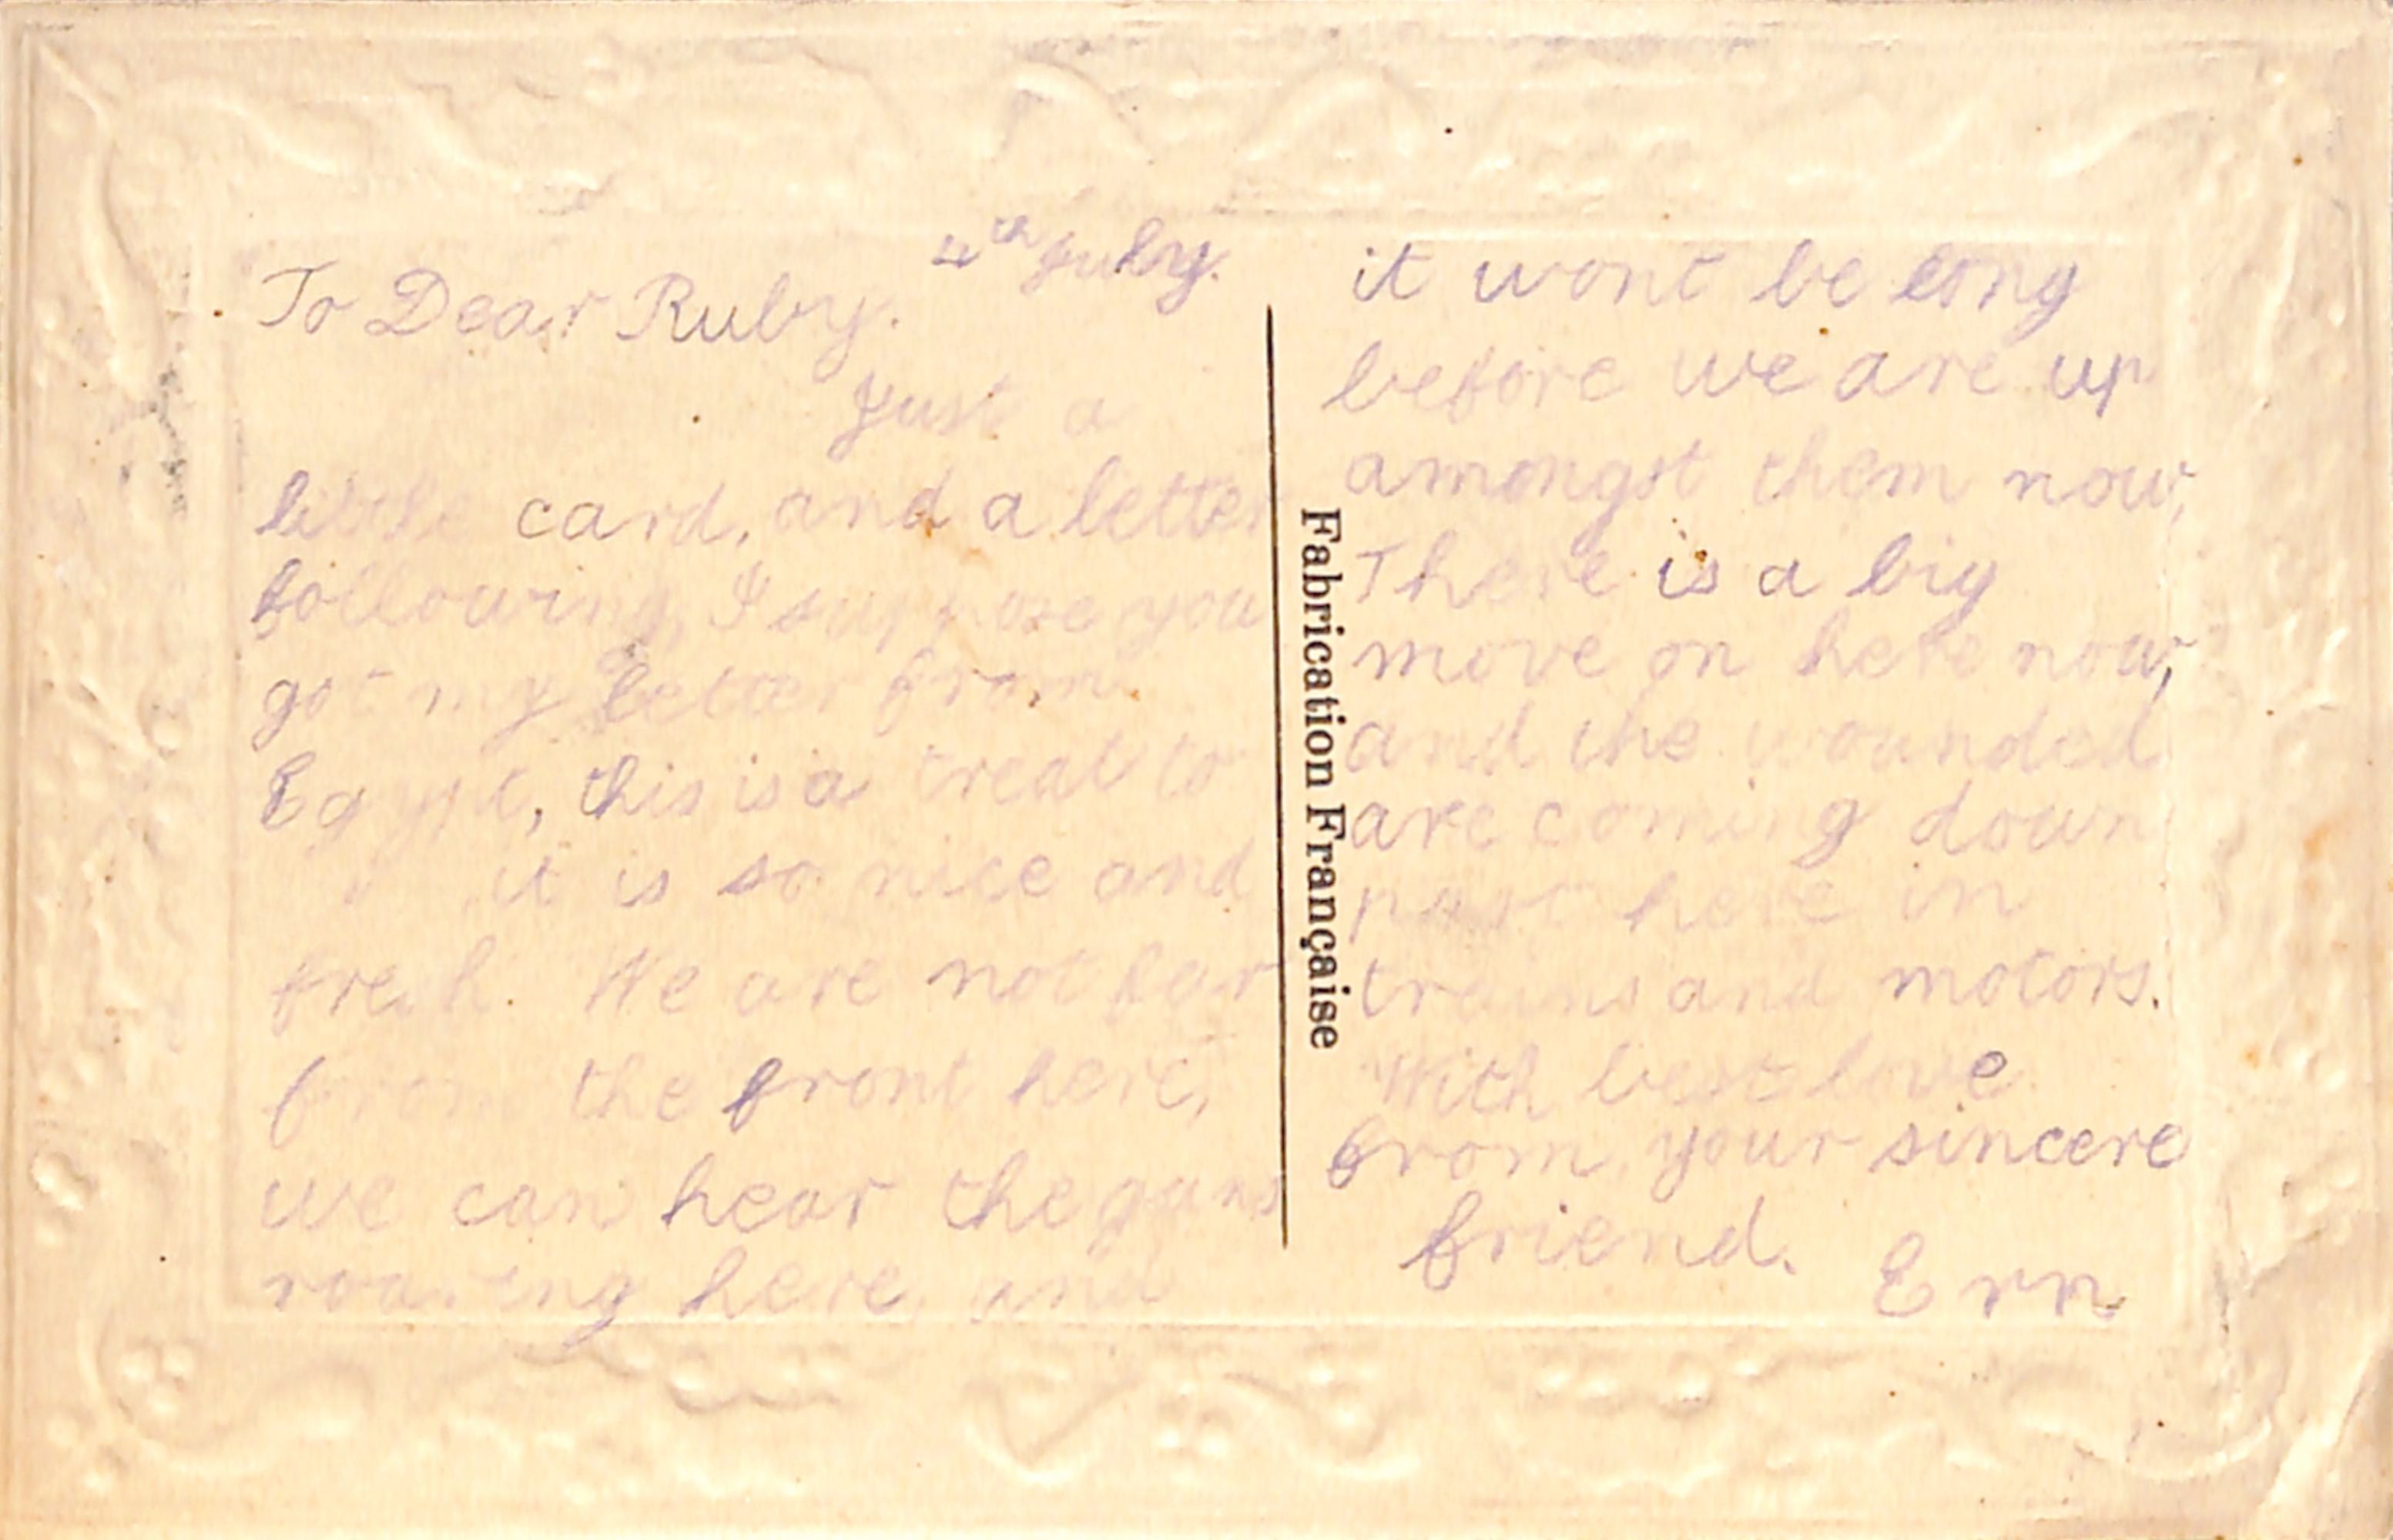 4th July.
To Dear Ruby.
Just a
little card, and a letter
following, I suppose you
got my letter from
Egypt, this is a treat to
it is so nice and
fresh. We are not far
from the front here,
we can hear the guns
roaring here, and
it wont be long
before we are up
amongst them now,
There is a big
move on here now,
and the wounded
are coming down
past here in
trains and motors.
With best love
from your sincere
friend. Ern
Fabrication Française